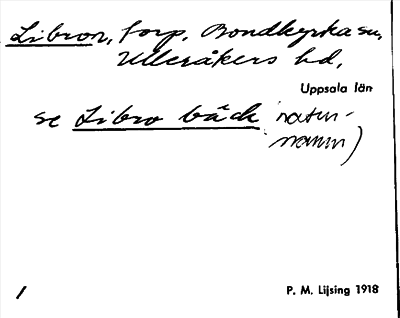 Libron, torp, Bondkyrka sn,
Ulleråkers hd,
Uppsala län
se Libro bäck (natur-
namn)
P. M. Lijsing 1918
1